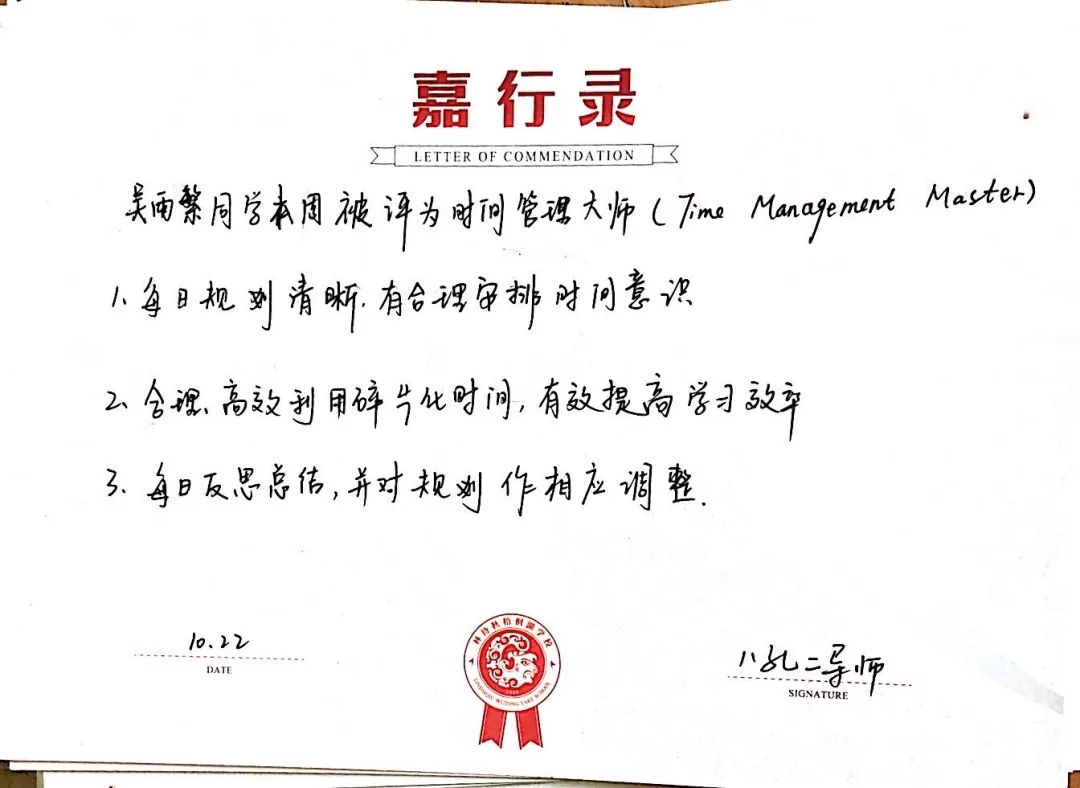 嘉行录
LETTER OF COMMENDATION
吴雨繁同学本周被评为时间管理大师(Time Management Master)
1、每日规划清晰,有合理安排时间意识
2、合理、高效利用碎片化时间,有效提高学习效率
3、每日反思总结,并对规划作相应调整.
10.22
DATE
林诗秋梧桐湖学校
WUTONG LAKE SCHOOL
八、二导师
SIGNATURE